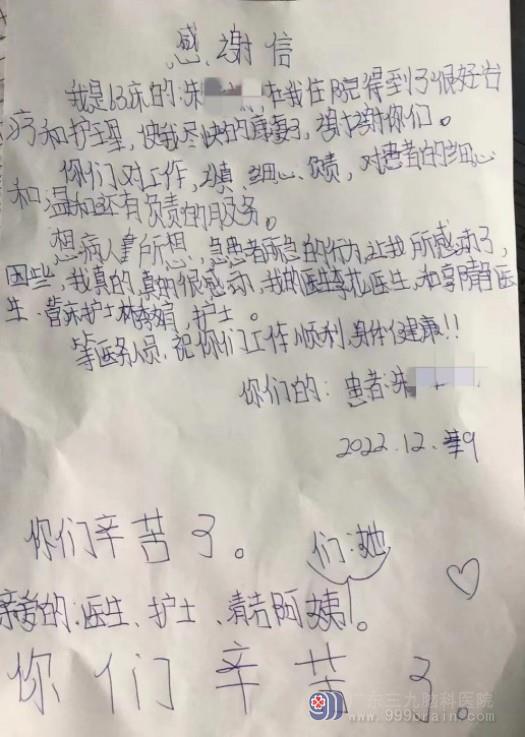 感谢信
我是13床的:洙 ,在我住院得到了很好治
疗和护理,使我尽快的康复了,谢谢谢你们。
你们对工作,认真、细心、负责,对患者的细心
和温和还有负责的服务。
想病人拿所想,急患者所急的行为,让我所感动了,
因些,我真的,真的很感动,我的医生李 医生,和 医
生.管床护士林 娟,护士。
等医务人员,祝你们工作顺利,身体健康!!
你们的:患者:洙
2022.12.9
你们辛苦了。 们:她
亲爱的.医生、护士、清洁阿姨!。
你们辛苦了。
广东三九脑科医院
www.999brain.com